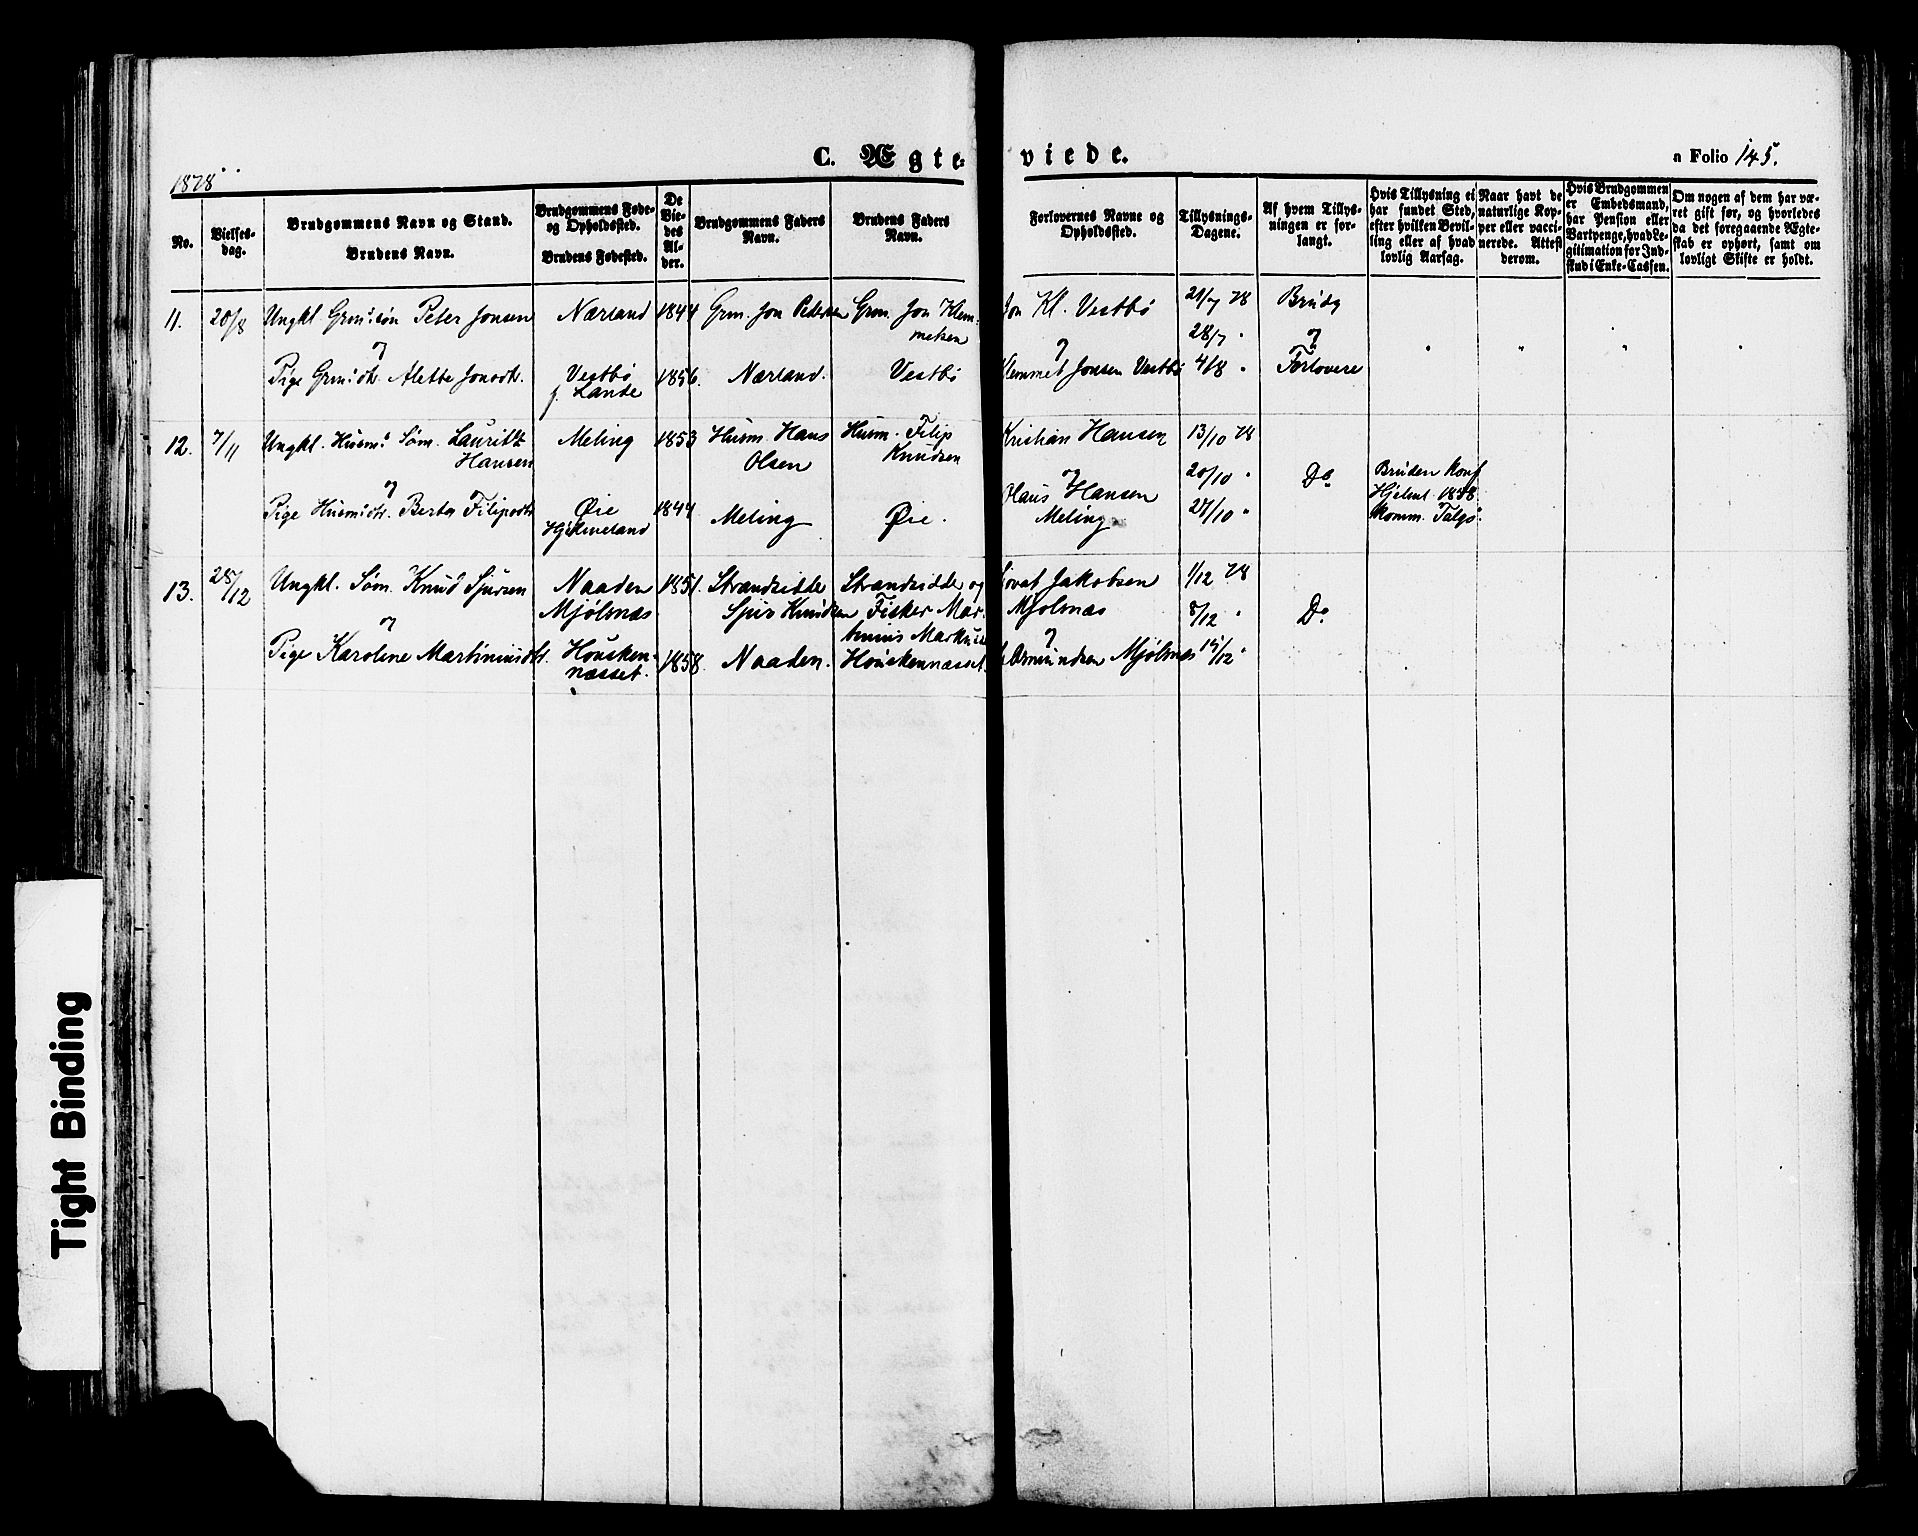 1878
C. Ægte-
viede.
a Folio 145.
No.
Vielses-
dag.
Brudgommens Navn og Stand.
Brudens Navn.
Brudgommens Føde-
og Opholdssted.
Brudens Fødested.
De
Vie-
des
Al-
der.
Brudgommens Faders
Navn.
Brudens Faders
Navn.
Forlovernes Navne og
Opholdssted.
Tillysnings-
Dagene.
Af hvem Tillys-
ningen er for-
langt.
Hvis Tillysning ei
har fundet Sted,
efter hvilken Bevil-
ling eller af hvad
lovlig Aarsag.
Naar havt de
naturlige Kop-
per eller vacci-
nerede. Attest
derom.
Hvis Brudgommen
er Embedsmand,
har Pension eller
Vartpenge, hvad Le-
gitimation for Ind-
skud i Enke-Cassen.
Om nogen af dem har væ-
ret gift før, og hvorledes
da det foregaaende Ægte-
skab er ophørt, samt om
lovligt Skifte er holdt.
11. 20/8 Ungkl. Grm: søn Peter Jonsen Nærland 1844 Grm. Jon Pedersen Grm. Jon Klem- Jon Kl. Vestbø 21/7 78 Brudg
metsen 28/7 "
og og og
Pige Grm: dtr. Alette Jonsdtr. Vestbø 1856. Nærland. Vestbø Klemmet Jonsen Vestbø 4/8 " Forlovere
f. Lande
12. 7/11 Ungkl. Husm: Søm. Lauritz Meling 1853 Husm. Hans Husm. Filip Kristian Hansen 13/10 78
Hansen Olsen Knudsen
og og 20/10 " Do Bruden konf
Olaus Hansen Hjelml. 1858
Pige Husm: dtr. Berta Filipsdtr Øie 1844 Meling Øie. Meling 27/10 " komm. Talgø.
13. 28/12 Ungkl. Søm. Knud Sjursen Naaden 1851. Strandsidde Strandsidde og Jakobsen 1/12 78
Mjølnæs Sjur Knudsen Fisker Mar- Mjølnæs 8/12 " Do
og tinius og
Pige Karoline Martiniusdtr. Housken- 1858. Naaden. Houskennæsset. Mjølnæs 15/12 "
næsset.
Tight Binding